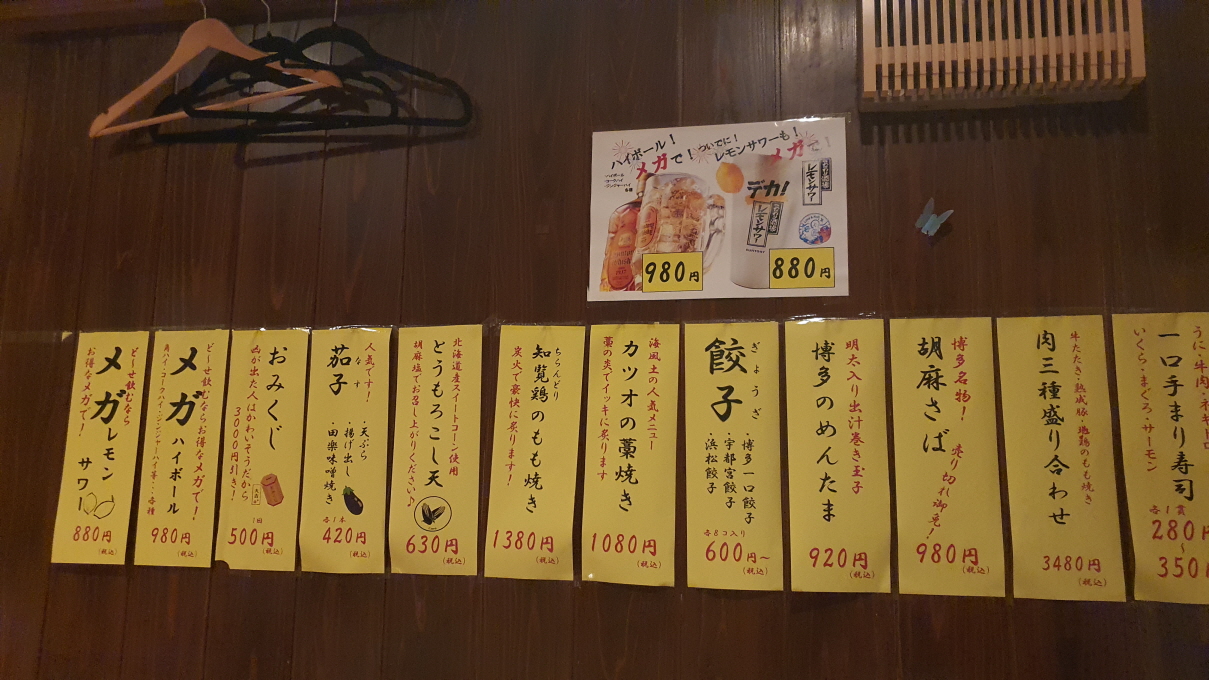 ハイボール！
メガで！
ハイボール
コークハイ
ジンジャーハイ
各種
ついでに！
レモンサワーも！
メガで！
デカ！
レモンサワー
レモンサワー
980円
880円
うに・牛肉・ネギトロ
一口手まり寿司
いくら・まぐろ・サーモン
各1貫
280円
〜
350
牛たたき・熟成豚・地鶏のもも焼き
肉三種盛り合わせ
3480円
(税込)
博多名物！
売り切れ御免！
胡麻さば
980円
(税込)
明太入り出汁巻き玉子
博多のめんたま
920円
(税込)
ぎょうざ
餃子
・博多一口餃子
・宇都宮餃子
・浜松餃子
各8コ入り
600円〜
(税込)
海風土の人気メニュー
カツオの藁焼き
藁の炎でイッキに炙ります
1080円
(税込)
ちらんどり
知覧鶏のもも焼き
炭火で豪快に炙ります！
1380円
(税込)
北海道産スイートコーン使用
とうもろこし天
胡麻塩でお召し上がりください♪
630円
(税込)
人気です！
なす
茄子
・天ぷら
・揚げ出し
・田楽味噌焼き
各1本
420円
(税込)
おみくじ
凶が出た人はかわいそうだから
3000円引き！
1回
500円
(税込)
ど〜せ飲むならお得なメガで！
メガハイボール
角ハイ・コークハイ・ジンジャーハイ等・・各種
980円
(税込)
ど〜せ飲むなら
メガレモンサワー
お得なメガで！
880円
(税込)